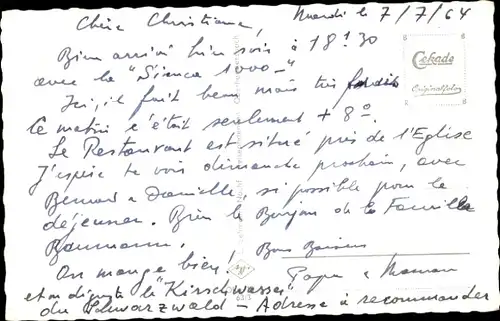 Mardi le 7/7/64
Chère Christiane,
Bien arrivé hier soir à 18h30
avec la "Simca 1000-"
Ici, il fait beau mais très froid
Ce matin c'était seulement + 8°
Le Restaurant est situé près de l'Eglise
J'espère te voir dimanche prochain, avec
Bernard e Danielle, si possible pour le
déjeuner. Bien le Bonjour de la Famille
Baumann.
On mange bien!
et on déguste le "Kirschwasser"
du Schwarzwald - Adresse à recommander
Bons Baisers
Papa e Maman
Cekade
Originalfoto